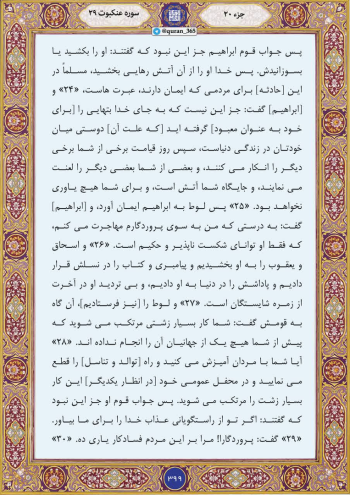 جزء ۲۰
سوره عنکبوت ۲۹
@quran_365
پس جواب قوم ابراهیم جز این نبود که گفتند: او را بکشید یا
بسوزانیدش. پس خدا او را از آن آتش رهایی بخشید، مسلماً در
این [حادثه] برای مردمی که ایمان دارند، عبرت هاست، «۲۴» و
[ابراهیم] گفت: جز این نیست که به جای خدا بتهایی را [برای
خود به عنوان معبود] گرفته اید [که علت آن] دوستی میان
خودتان در زندگی دنیاست، سپس روز قیامت برخی از شما برخی
دیگر را انکار می کنند، و بعضی از شما بعضی دیگر را لعنت
می نمایند، و جایگاه شما آتش است، و برای شما هیچ یاوری
نخواهد بود. «۲۵» پس لوط به ابراهیم ایمان آورد، و [ابراهیم]
گفت: به درستی که من به سوی پروردگارم مهاجرت می کنم،
که فقط او توانای شکست ناپذیر و حکیم است. «۲۶» و اسحاق
و یعقوب را به او بخشیدیم و پیامبری و کتاب را در نسلش قرار
دادیم و پاداشش را در دنیا به او دادیم، و بی تردید او در آخرت
از زمره شایستگان است. «۲۷» و لوط را [نیز فرستادیم]، آن گاه
به قومش گفت: شما کار بسیار زشتی مرتکب می شوید که
پیش از شما هیچ یک از جهانیان آن را انجام نداده اند. «۲۸»
آیا شما با مردان آمیزش می کنید و راه [توالد و تناسل] را قطع
می نمایید و در محفل عمومی خود [در انظار یکدیگر] این کار
بسیار زشت را مرتکب می شوید. پس جواب قوم او جز این نبود
که گفتند: اگر تو از راستگویانی عذاب خدا را برای ما بیاور.
«۲۹» گفت: پروردگارا! مرا بر این مردم فسادکار یاری ده. «۳۰»
۳۹۹